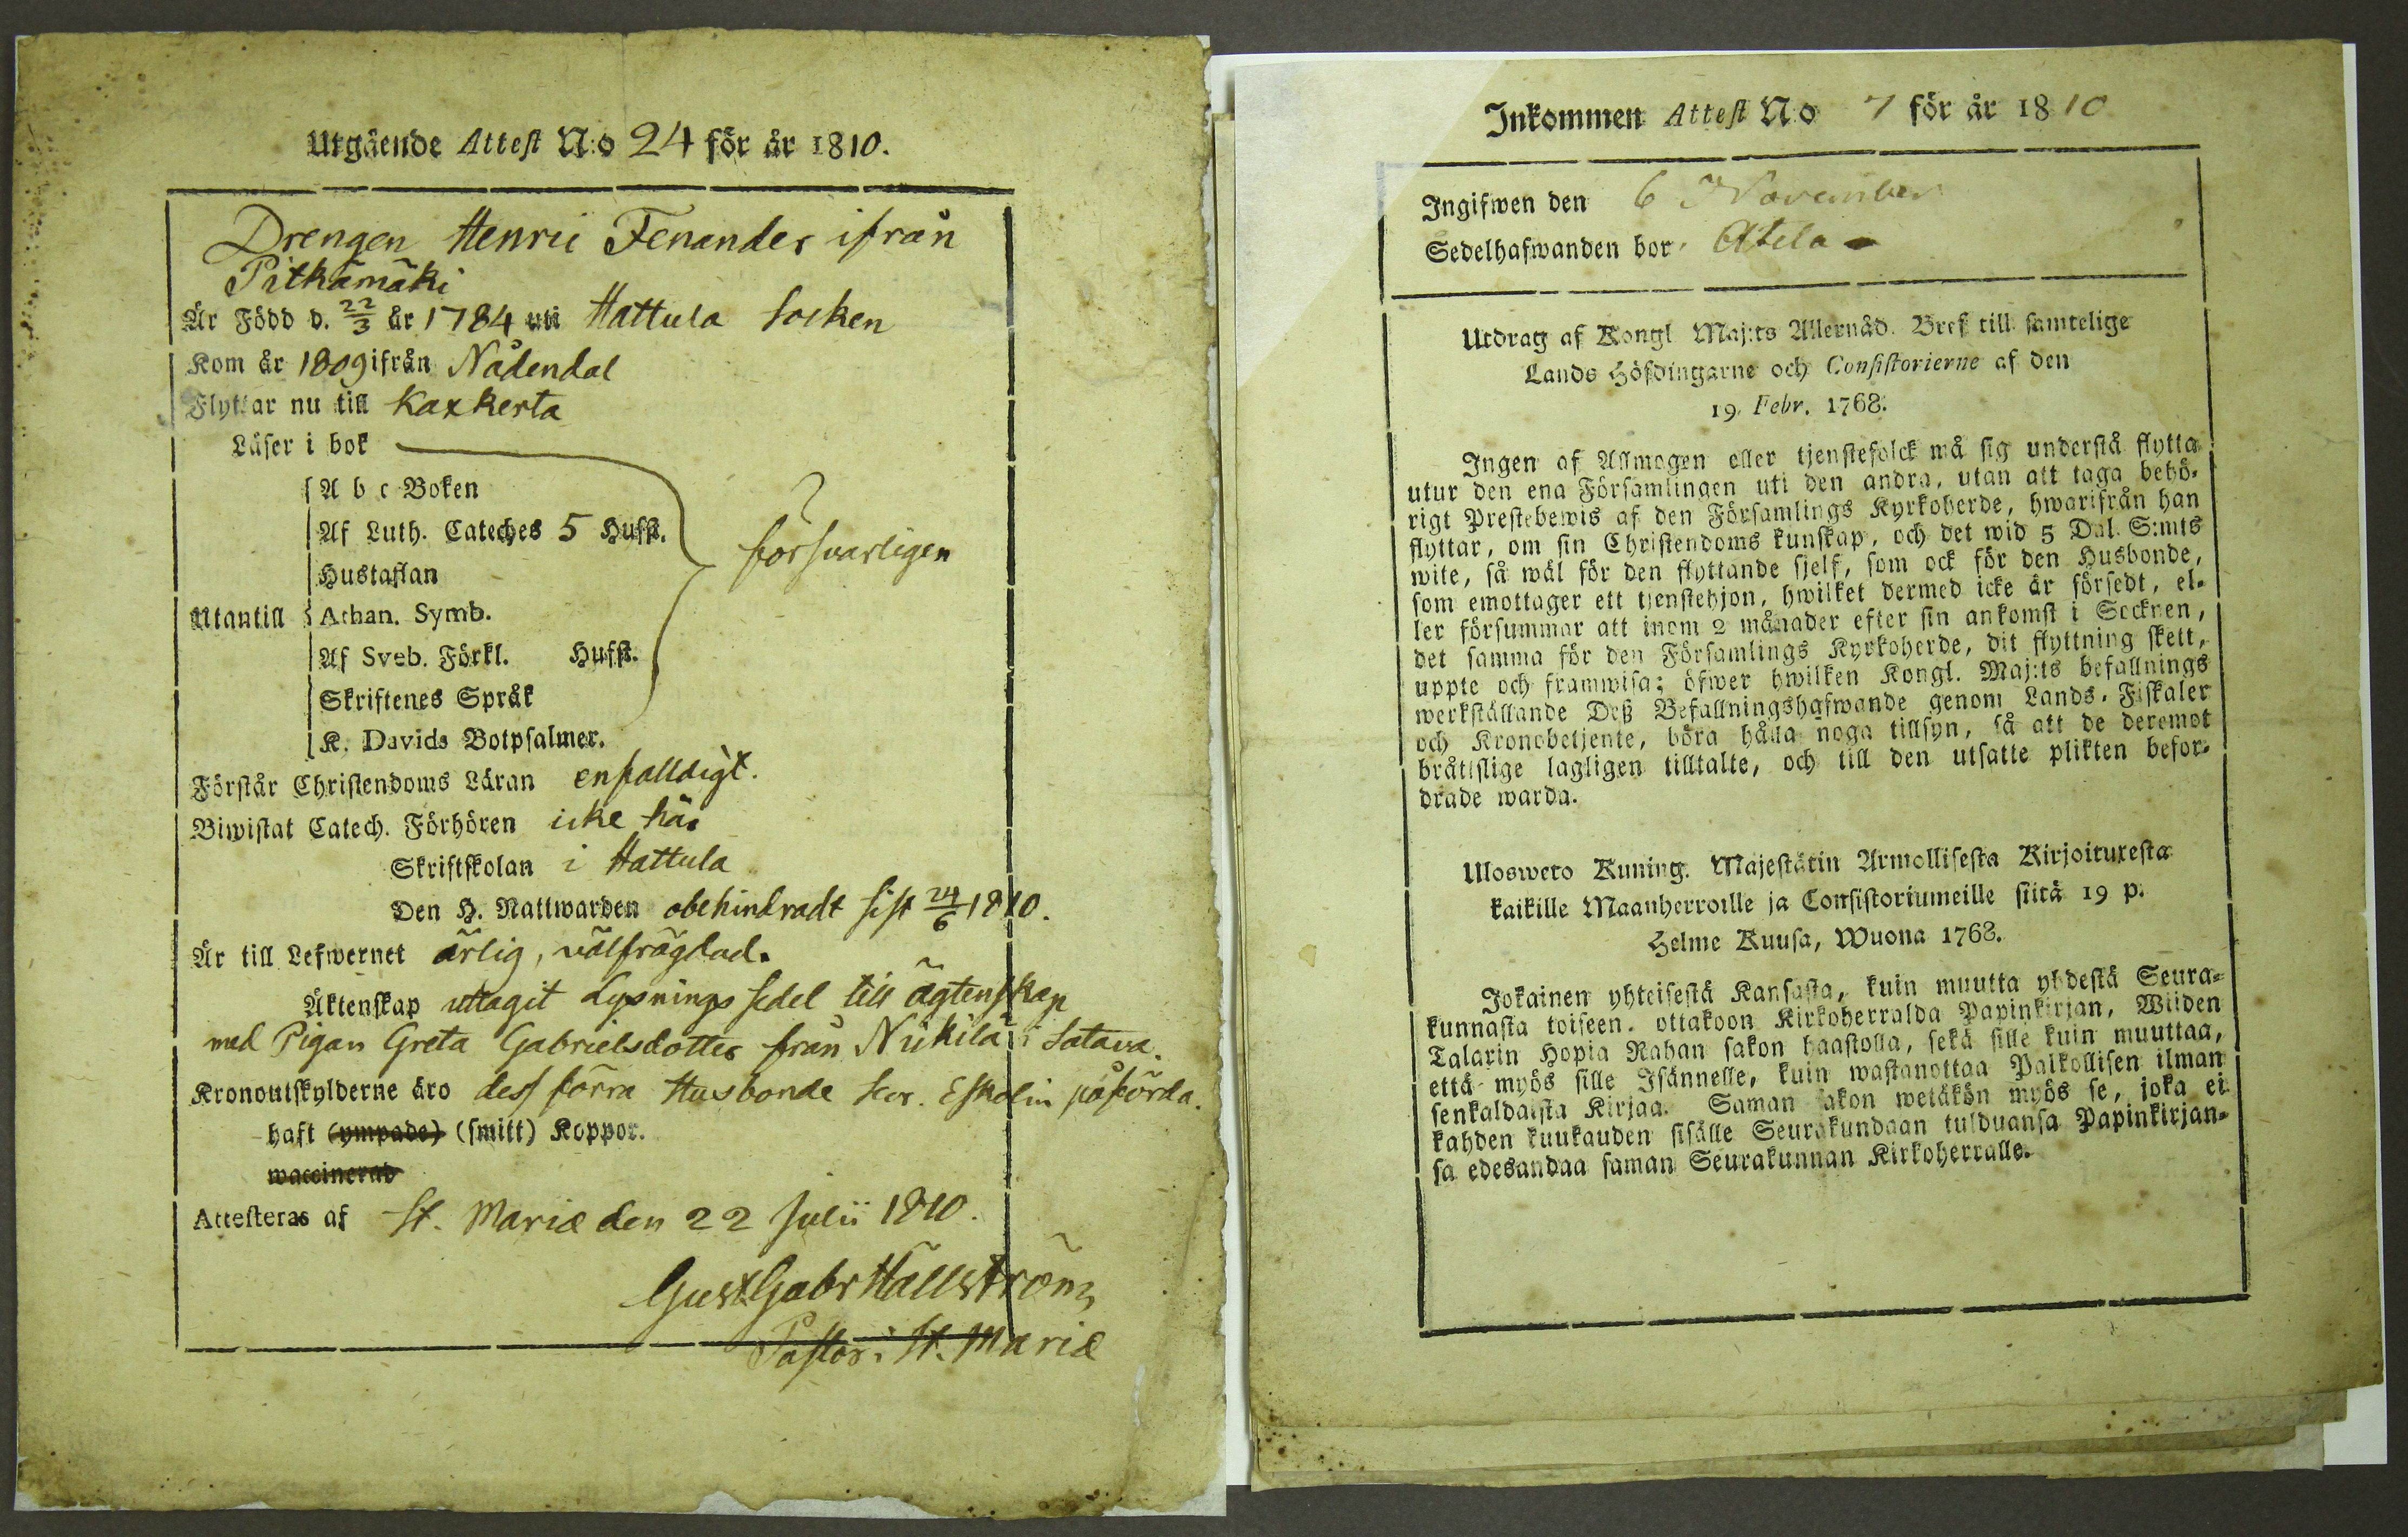 Utgående Attest N:o 24 för år 1810.
Drengen Henric Fenander ifrån
Pitkämäki
Är Född d. 22/3 år 1784 uti Hattula Socken
Kom år 1809 ifrån Nådendal
Flyttar nu till Kaxkerta
Läser i bok
A b c Boken
Af Luth. Cateches 5 Hufst.
Hustaflan
försvarligen
Utantill Athan. Symb.
Af Sveb. Förkl. Hufst.
Skriftenes Språk
K. Davids Botpsalmer.
Förstår Christendoms Läran enfalldigt.
Biwistat Catech. Förhören icke här
Skriftskolan i Hattula
Den H. Nattwarden obehindradt sist 24/6 1810.
Är till Lefwernet ärlig, välfrägdad.
Äktenskap uttagit Lysnings sedel till ägtenskap
med Pigan Greta Gabrielsdotter från Niikilä i Satava.
Kronoutskylderne äro dess förra Husbonde Eskolin påförda.
haft (ympade) (smitt) Koppor.
waccinerad
Attesteras af St. Mariæ den 22 Julii 1810.
Gust. Gabr Hällström
Pastor i St. Mariæ
Inkommen Attest N:o 7 för år 1810
Ingifwen den 6 November
Sedelhafwanden bor Atela
Utdrag af Kongl Maj:ts Allernåd. Bref till samtelige
Lands Höfdingarne och Consistorierne af den
19. Febr. 1768.
Ingen af Allmogen eller tjenstefolck må sig understå flytta
utur den ena Församlingen uti den andra, utan att taga behö-
rigt Prestebewis af den Församlings Kyrkoherde, hwarifrån han
flyttar, om sin Christendoms kunskap, och det wid 5 Dal. S:mts
wite, så wäl för den flyttande sjelf, som ock för den Husbonde,
som emottager ett tjenstehjon, hwilket dermed icke är försedt, el-
ler försummar att inom 2 månader efter sin ankomst i Socknen,
det samma för den Församlings Kyrkoherde, dit flyttning skett,
uppte och framwisa; öfwer hwilken Kongl. Maj:ts befallnings
werkställande Deß Befallningshafwande genom Lands-Fiskaler
och Kronobetjente, böra hålla noga tillsyn, så att de deremot
bråttslige lagligen tilltalte, och till den utsatte plikten befor-
drade warda.
Ulosweto Kuning. Majestätin Armollisesta Kirjoituxesta
kaikille Maanherroille ja Consistoriumeille siitä 19 p.
Helme Kuusa, Wuona 1768.
Jokainen yhteisestä Kansasta, kuin muutta yhdestä Seura-
kunnasta toiseen. ottakoon Kirkoherralda Papinkirjan, Wiiden
Talarin Hopia Rahan sakon haastolla, sekä sille kuin muuttaa,
että myös sille Isännelle, kuin wastanottaa Palkollisen ilman
senkaldaista Kirjaa. Saman sakon wetäkön myös se, joka ei
kahden kuukauden sisälle Seurakundaan tulduansa Papinkirjan-
sa edesandaa saman Seurakunnan Kirkoherralle.